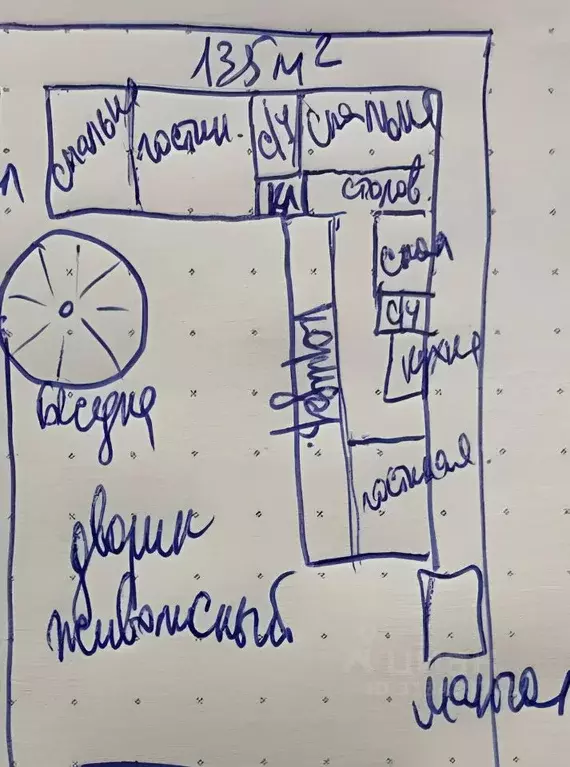 135 м²
спальня
гостин.
с/у
спальня
кл
столов.
спал
с/у
кухня
коридор.
гостиная
беседка
дворик
живописный
мангал